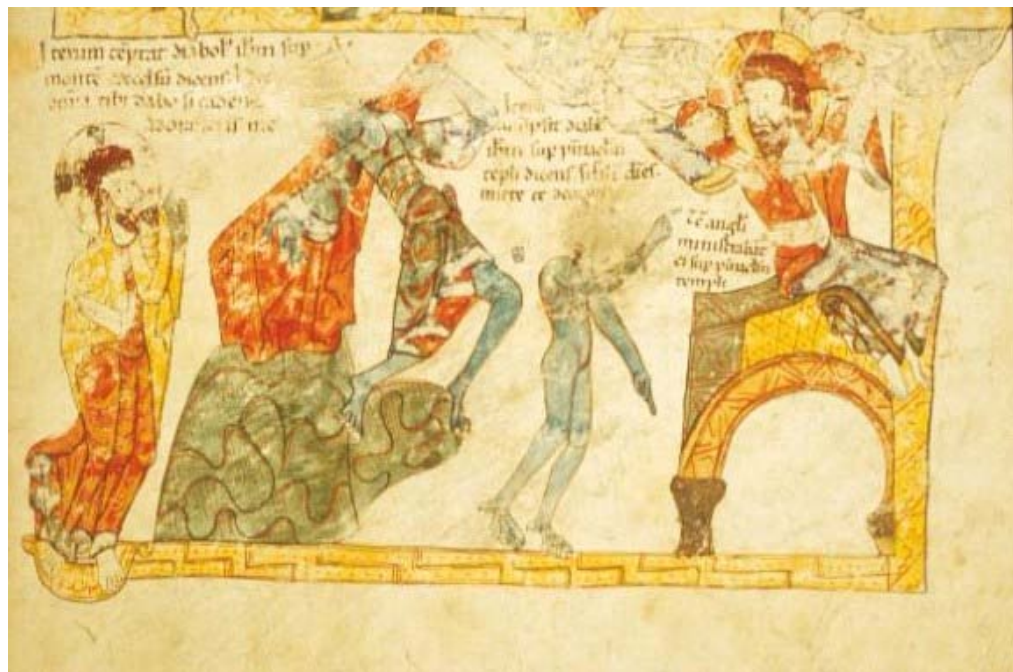 Iterum tēptat diabol' ihm sup
montē excelsū dicens h
omīa tibi dabo si cadens
adoraveris me
Iterū
diab
ihm sup pinaclm
tēpli dicens si fili' di es
mitte te deorsu
angli
ministrabāt
ei sup pinaclm
templi